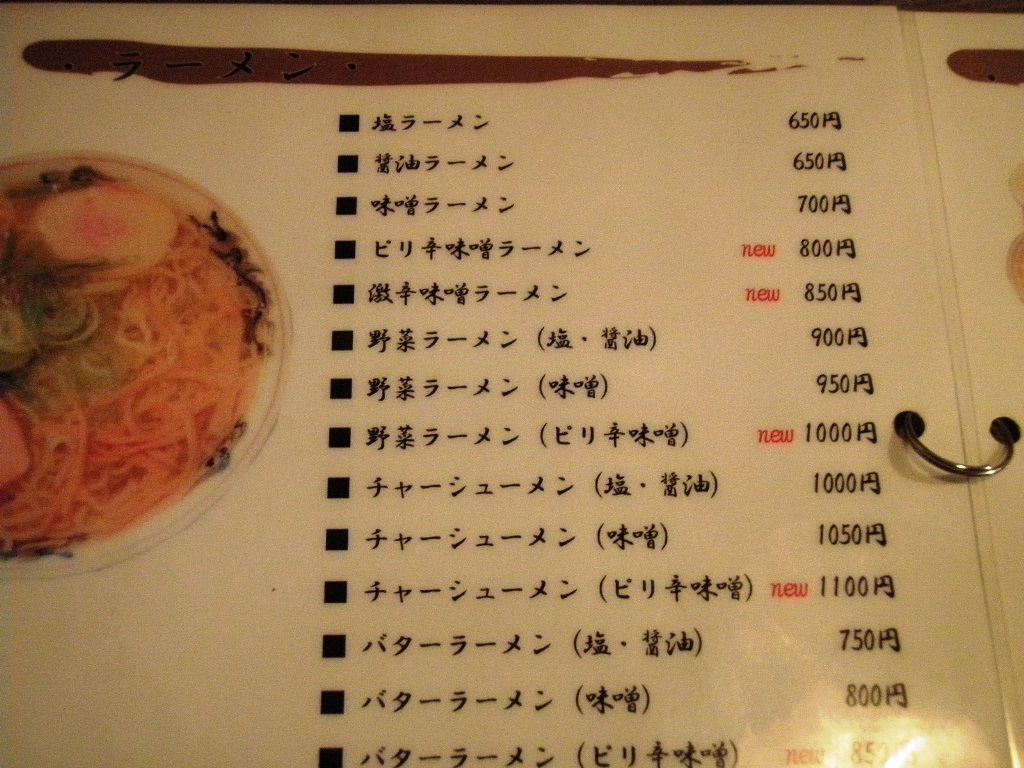 ・ラーメン・
■ 塩ラーメン 650円
■ 醤油ラーメン 650円
■ 味噌ラーメン 700円
■ ピリ辛味噌ラーメン new 800円
■ 激辛味噌ラーメン new 850円
■ 野菜ラーメン（塩・醤油） 900円
■ 野菜ラーメン（味噌） 950円
■ 野菜ラーメン（ピリ辛味噌） new 1000円
■ チャーシューメン（塩・醤油） 1000円
■ チャーシューメン（味噌） 1050円
■ チャーシューメン（ピリ辛味噌） new 1100円
■ バターラーメン（塩・醤油） 750円
■ バターラーメン（味噌） 800円
■ バターラーメン（ピリ辛味噌） new 850円